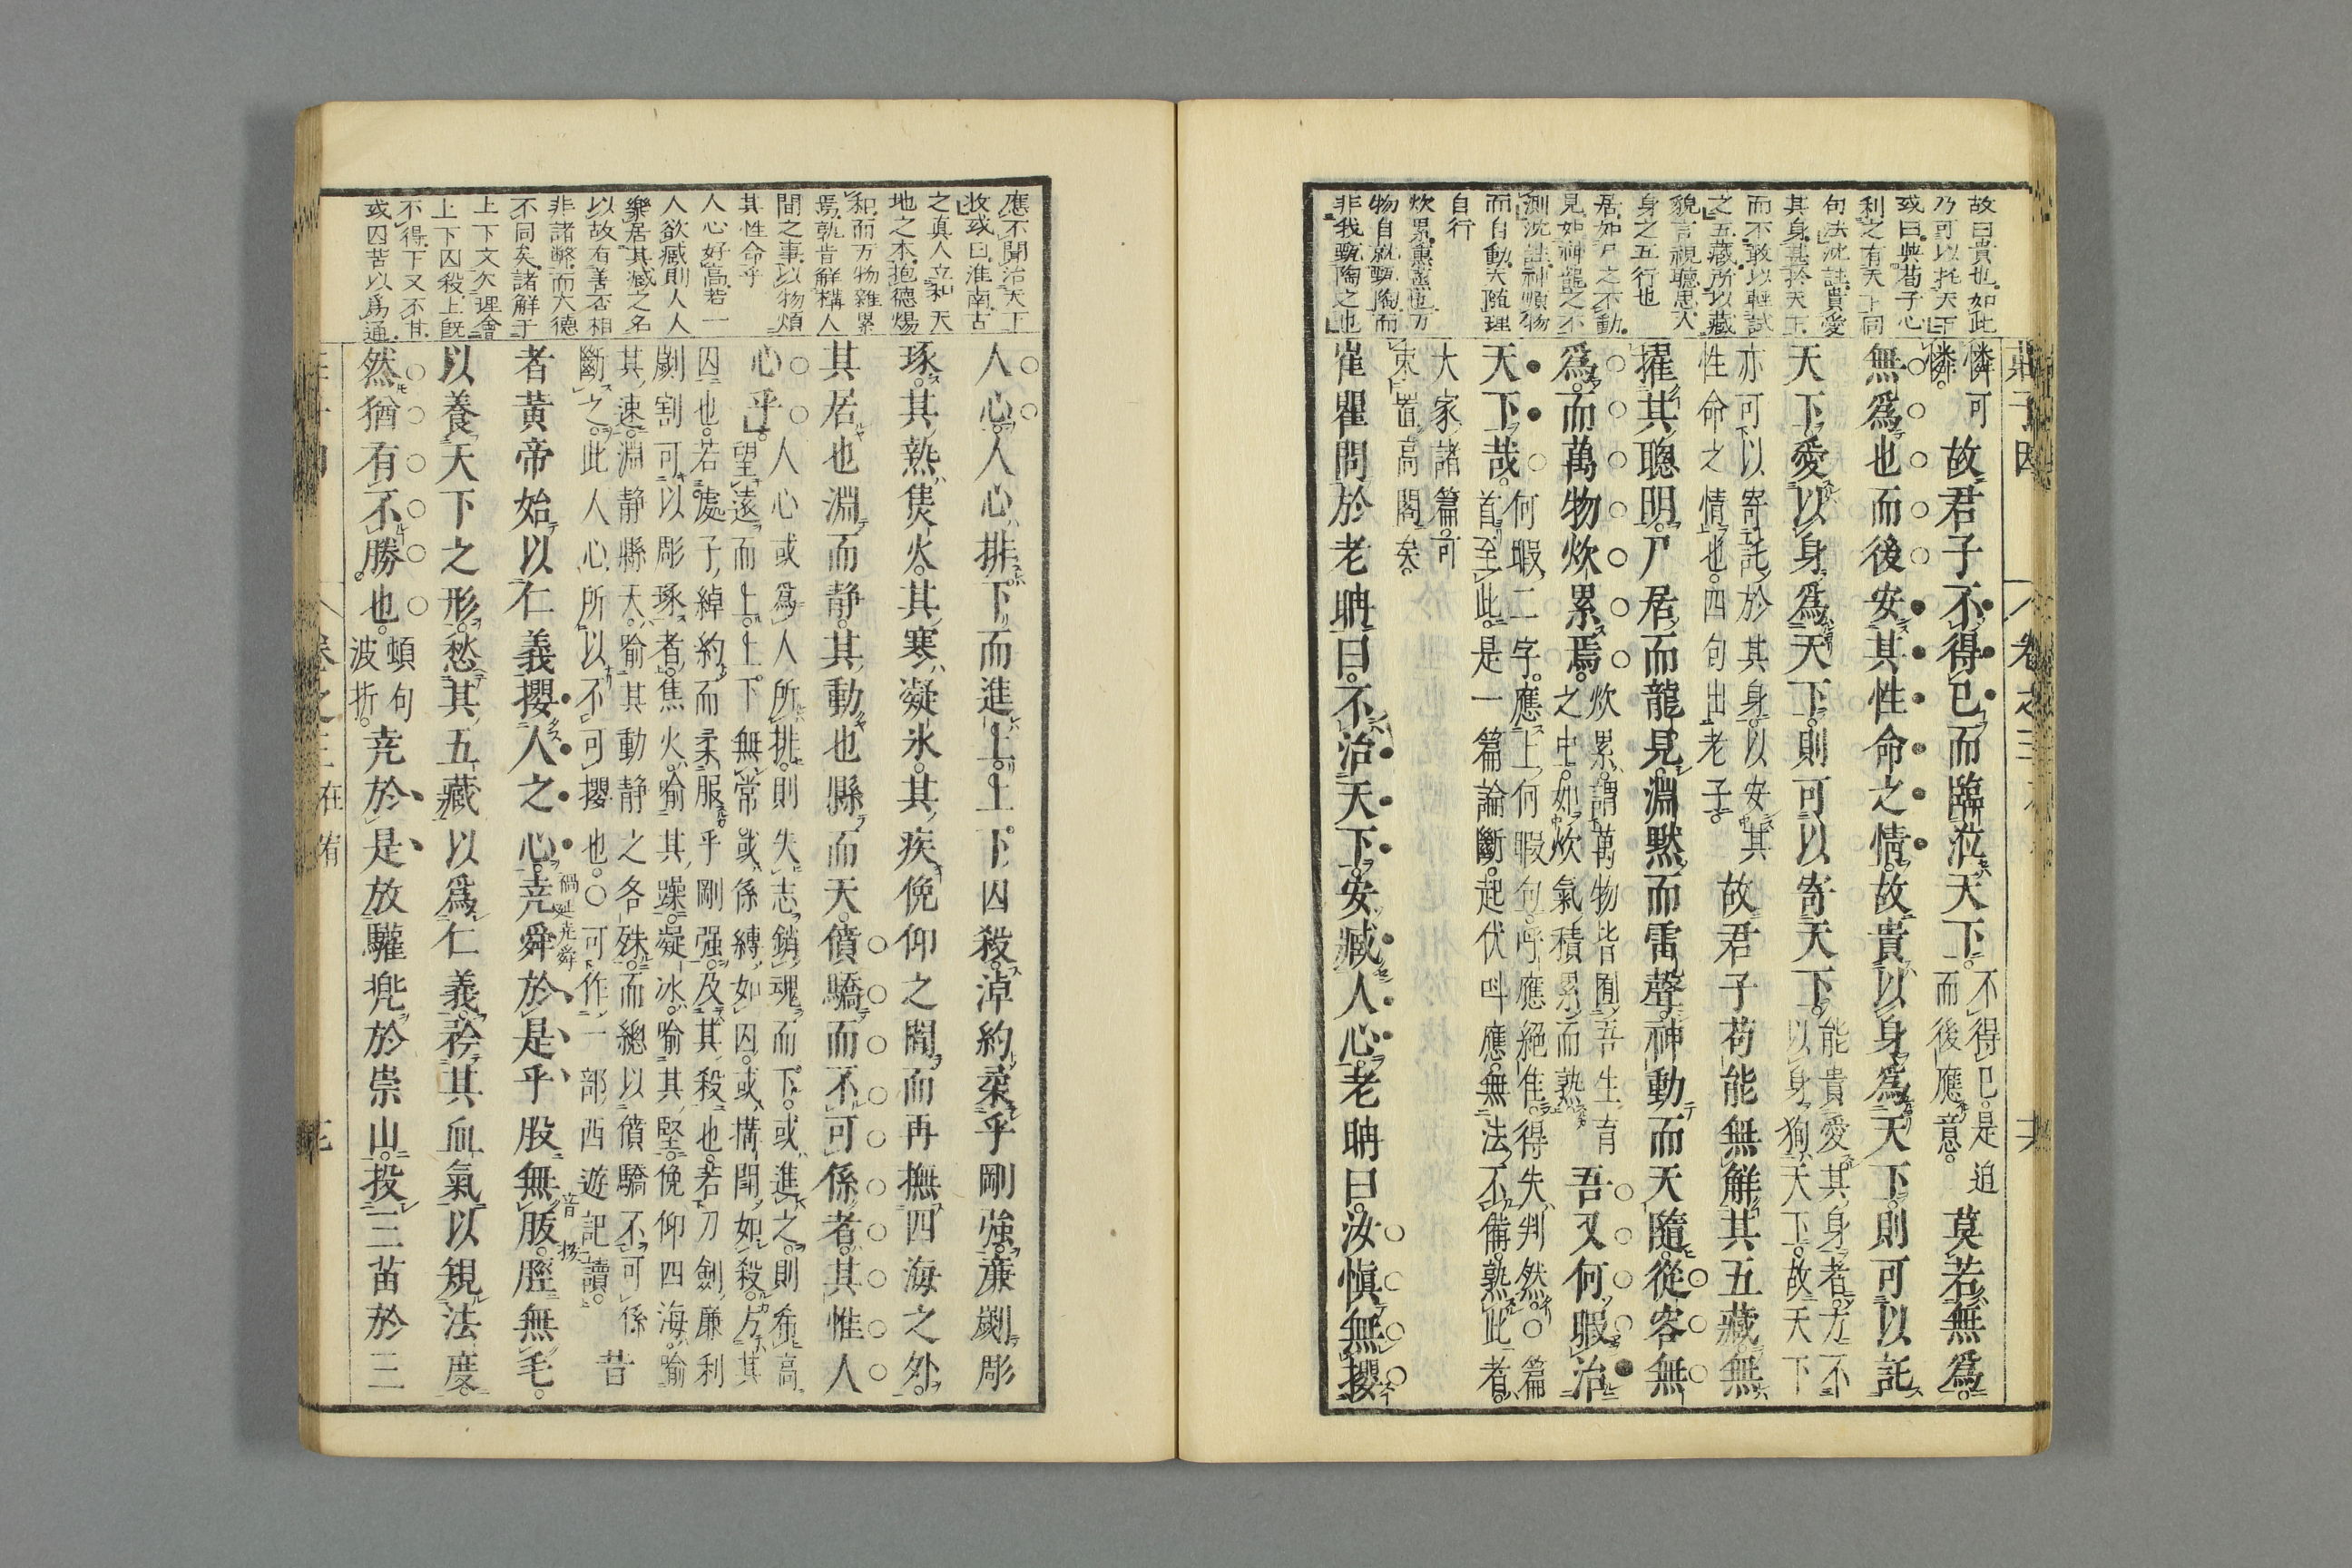 故曰貴也如此
乃可以托天下
或曰與荀子心
利之有天下同
句法沈註貴愛
其身甚於天下
而不敢以輕試
之五藏所以藏
貌言視聽思人
身之五行也
居如尸之不動
見如神龍之不
測沈註神順物
而自動天隨理
自行
炊累熏蒸也万
物自就甄陶而
非我甄陶之也
憐可
憐。故君子不得已而臨涖天下。不得已。是迫
而後應意。莫若無爲。
無爲也而後安其性命之情。故貴以身爲天下。則可以託
天下。愛以身爲天下。則可以寄天下。能貴愛其身者。方不
以身狥天下。故天下
亦可以寄託於其身。以安其
性命之情也。四句出老子。故君子苟能無解其五藏。無
擢其聰明。尸居而龍見。淵默而雷聲。神動而天隨。從容無
爲。而萬物炊累焉。炊累。謂萬物皆囿吾生育
之中。如炊氣積累而熟。吾又何暇治
天下哉。何暇二字。應上何暇句。呼應絕佳。得失判然。○篇
首至此。是一篇論斷。起伏呌應。無法不備。熟此者。
大家諸篇。可
束置高閣矣。
崔瞿問於老聃曰。不治天下。安臧人心。老聃曰。汝愼無攖
應不聞治天下
妝或曰淮南古
之真人立和天
地之本抱德煬
和而万物雜累
焉孰肯解構人
間之事以物煩
其性命乎
人心好高若一
人欲臧則人人
樂居其臧之名
以故有善否相
非諸弊而大德
不同矣諸解于
上下文欠理會
上下囚殺上旣
不得下又不甘
或囚苦以爲通
人心。人心排下而進上。上下囚殺。淖約柔乎剛强。廉劌彫
琢。其熱焦火。其寒凝氷。其疾俛仰之間。而再撫四海之外。
其居也淵而静。其動也縣而天。僨驕而不可係者。其惟人
心乎。人心或爲人所排。則失志銷魂而下。或進之。則希高
望遠而上。上下無常。或係縛如囚。或搆鬬如殺。方其
囚也。若處子綽約而柔服乎剛强。及其殺也。若刀劍廉利
劌割可以彫琢者。焦火喻其躁。凝冰喻其堅。俛仰四海喻
其速。淵静縣天。喻其動静之各殊。而總以僨驕不可係
斷之。此人心所以不可攖也。○可作一部西遊記讀。昔
者黄帝始以仁義攖人之心。堯舜於是乎股無胈。脛無毛。
禍延堯舜
音拔
以養天下之形。愁其五藏以爲仁義。矜其血氣以規法度。
然猶有不勝也。頓句
波折。堯於是放驩兠於崇山。投三苗於三